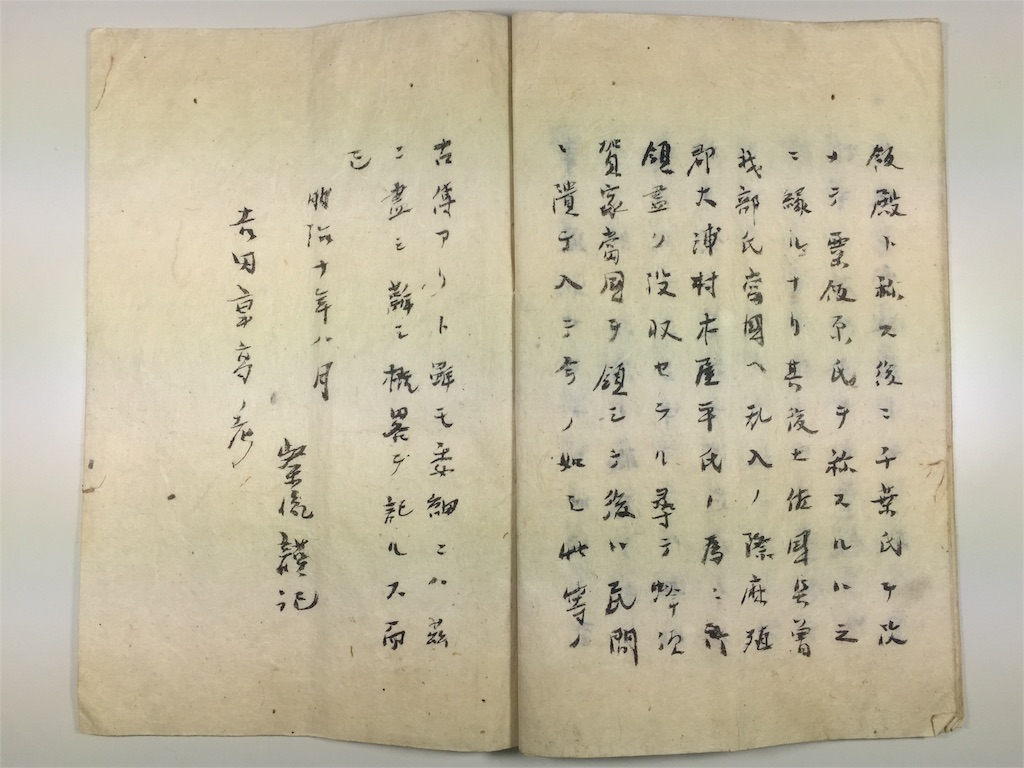 飯殿ト称ス後ニ千葉氏ヲ改
メテ粟飯原氏ヲ称スルハ之
ニ縁ルナリ其後土佐国長曽
我部氏當國ヘ乱入ノ際麻殖
郡大浦村木屋平氏ノ為ニ所
領盡ク没収セラル尋テ蜂須
賀家當国ヲ領シテ後ハ民間
ニ潰テ入テ今ノ如シ此等ノ
古傳アリト雖モ委細ニハ茲
ニ盡シ難シ概畧ヲ記ルス而
已
明治十年八月
謹記
吉田章